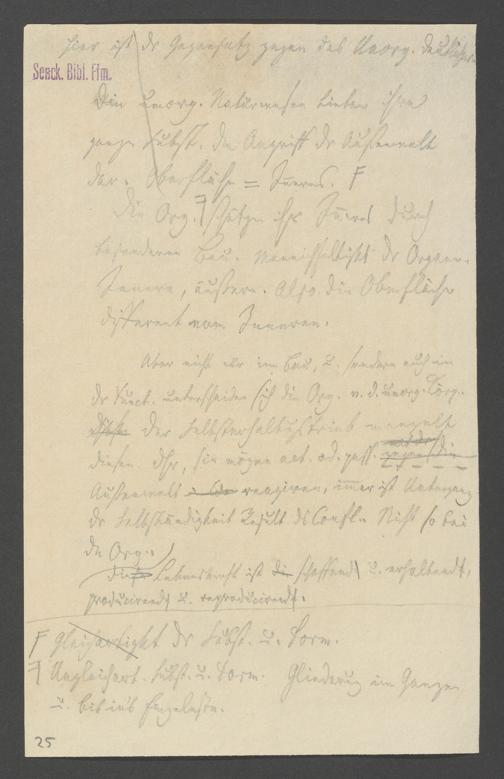 hier ist dr Gegensatz gegen das Unorg. deutlicher.
Senck. Bibl. Ffm.
Die unorg. Naturwesen bieten ihre
ganze Subst. dem Angriff dr Außenwelt
dar. Oberfläche = Inneres. F
Die Org. schützen ihr Inneres durch
besonderen Bau. Mannichfaltigkt dr Organe.
Innere, äußere. Also die Oberfläche
different vom Inneren.
Aber nicht nur im Bau, sondern auch in
dr Funct. unterscheiden sich die Org. v. d. unorg. Körp.
der Selbsterhaltungstrieb mangelt
diesen. Dhr, sie mögen act. od. pass. gegen die
Außenwelt reagiren, immer ist Untergang
dr Selbständigkeit Result. ds Confl. Nicht so bei
den Org.
die Lebenskraft ist die schaffend u. erhaltend,
producirend u. reproducirend.
F Gleichartigkt dr Subst. u. Form.
Ungleichart. Subst. u. Form. Gliederung im Ganzen
u. bis ins Einzelnste.
25